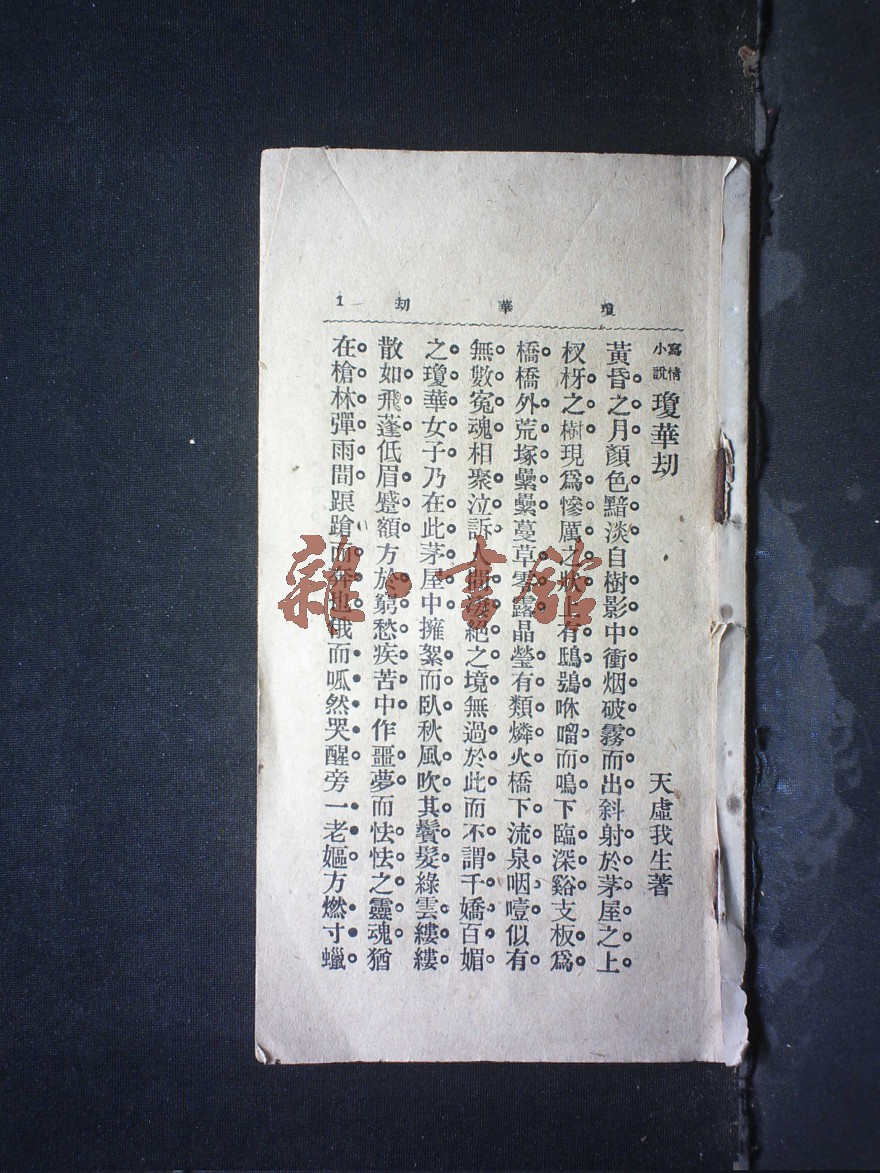 瓊華刧 1
寫情小說 瓊華刧 天虛我生著
黃昏之月顏色黯淡自樹影中衝烟破霧而出斜射於茅屋之上
杈枒之樹現爲慘厲之狀上有鴟鴞咻嚠而鳴下臨深谿支板爲
橋橋外荒塚纍纍蔓草零露晶瑩有類燐火橋下流泉咽噎似有
無數寃魂相聚泣訴人間淒絕之境無過於此而不謂千嬌百媚
之瓊華女子乃在此茅屋中擁絮而臥秋風吹其鬢髮綠雲縷縷
散如飛蓬低眉蹙額方於窮愁疾苦中作噩夢而怯怯之靈魂猶
在槍林彈雨間踉蹌而奔也俄而呱然哭醒旁一老嫗方燃寸蠟
雜·書館